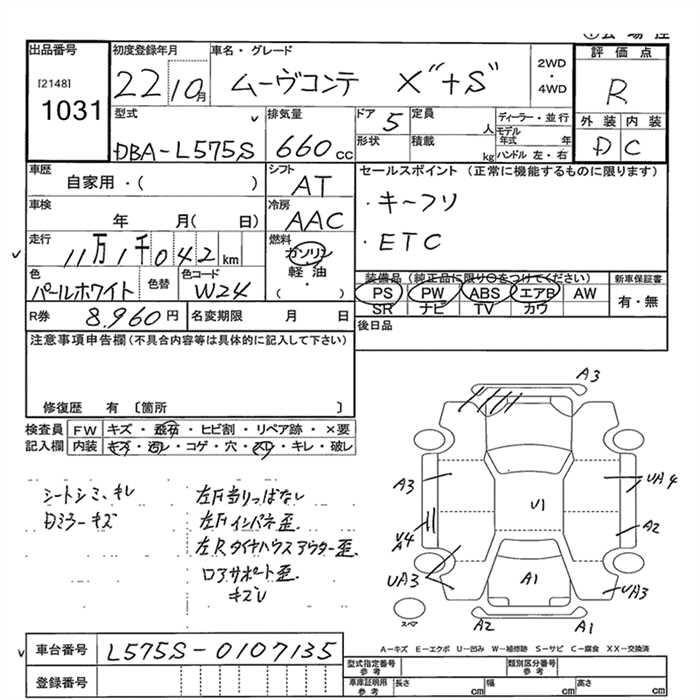 出品番号
[2148]
1031
初度登録年月
22 10月
車名・グレード
ムーヴコンテ X"+S"
2WD
・
4WD
評価点
R
型式
DBA-L575S
排気量
660cc
ドア 5
定員 人
形状
積載 kg
ディーラー・並行
モデル年式 年
ハンドル 左・右
外装 内装
D C
車歴
自家用・( )
シフト
AT
車検
年 月( 日)
冷房
AAC
セールスポイント (正常に機能するものに限ります)
・キーフリ
・ETC
走行
11万1千042km
燃料
ガソリン
・
軽油
・
( )
色
パールホワイト
色替
色コード
W24
装備品(純正品に限り○をつけてください)
PS PW ABS エアB AW
SR ナビ TV カワ
新車保証書
有・無
R券 8,960円
名変期限 月 日
後日品
注意事項申告欄(不具合内容等は具体的に記入して下さい)
修復歴 有 〔箇所 〕
検査員 FW キズ・飛石・ヒビ割・リペア跡・×要
記入欄 内装 キズ・汚レ・コゲ・穴・スレ・キレ・破レ
シートシミ、キレ
Dミラーキズ
左F当りっぱなし
左Fインパネ歪
左Rタイヤハウスアウター歪
ロアサポート歪
キズレ
A3
A3
UA4
U1
A2
V4
A
UA3
A1
UA3
スペア
A2
A1
A-キズ E-エクボ U-凹み W-補修跡 S-サビ C-腐食 XX-交換済
車台番号 L575S-0107135
登録番号
型式指定番号
参考
類別区分番号
参考
車庫証明用
参考
長さ cm
幅 cm
高さ cm